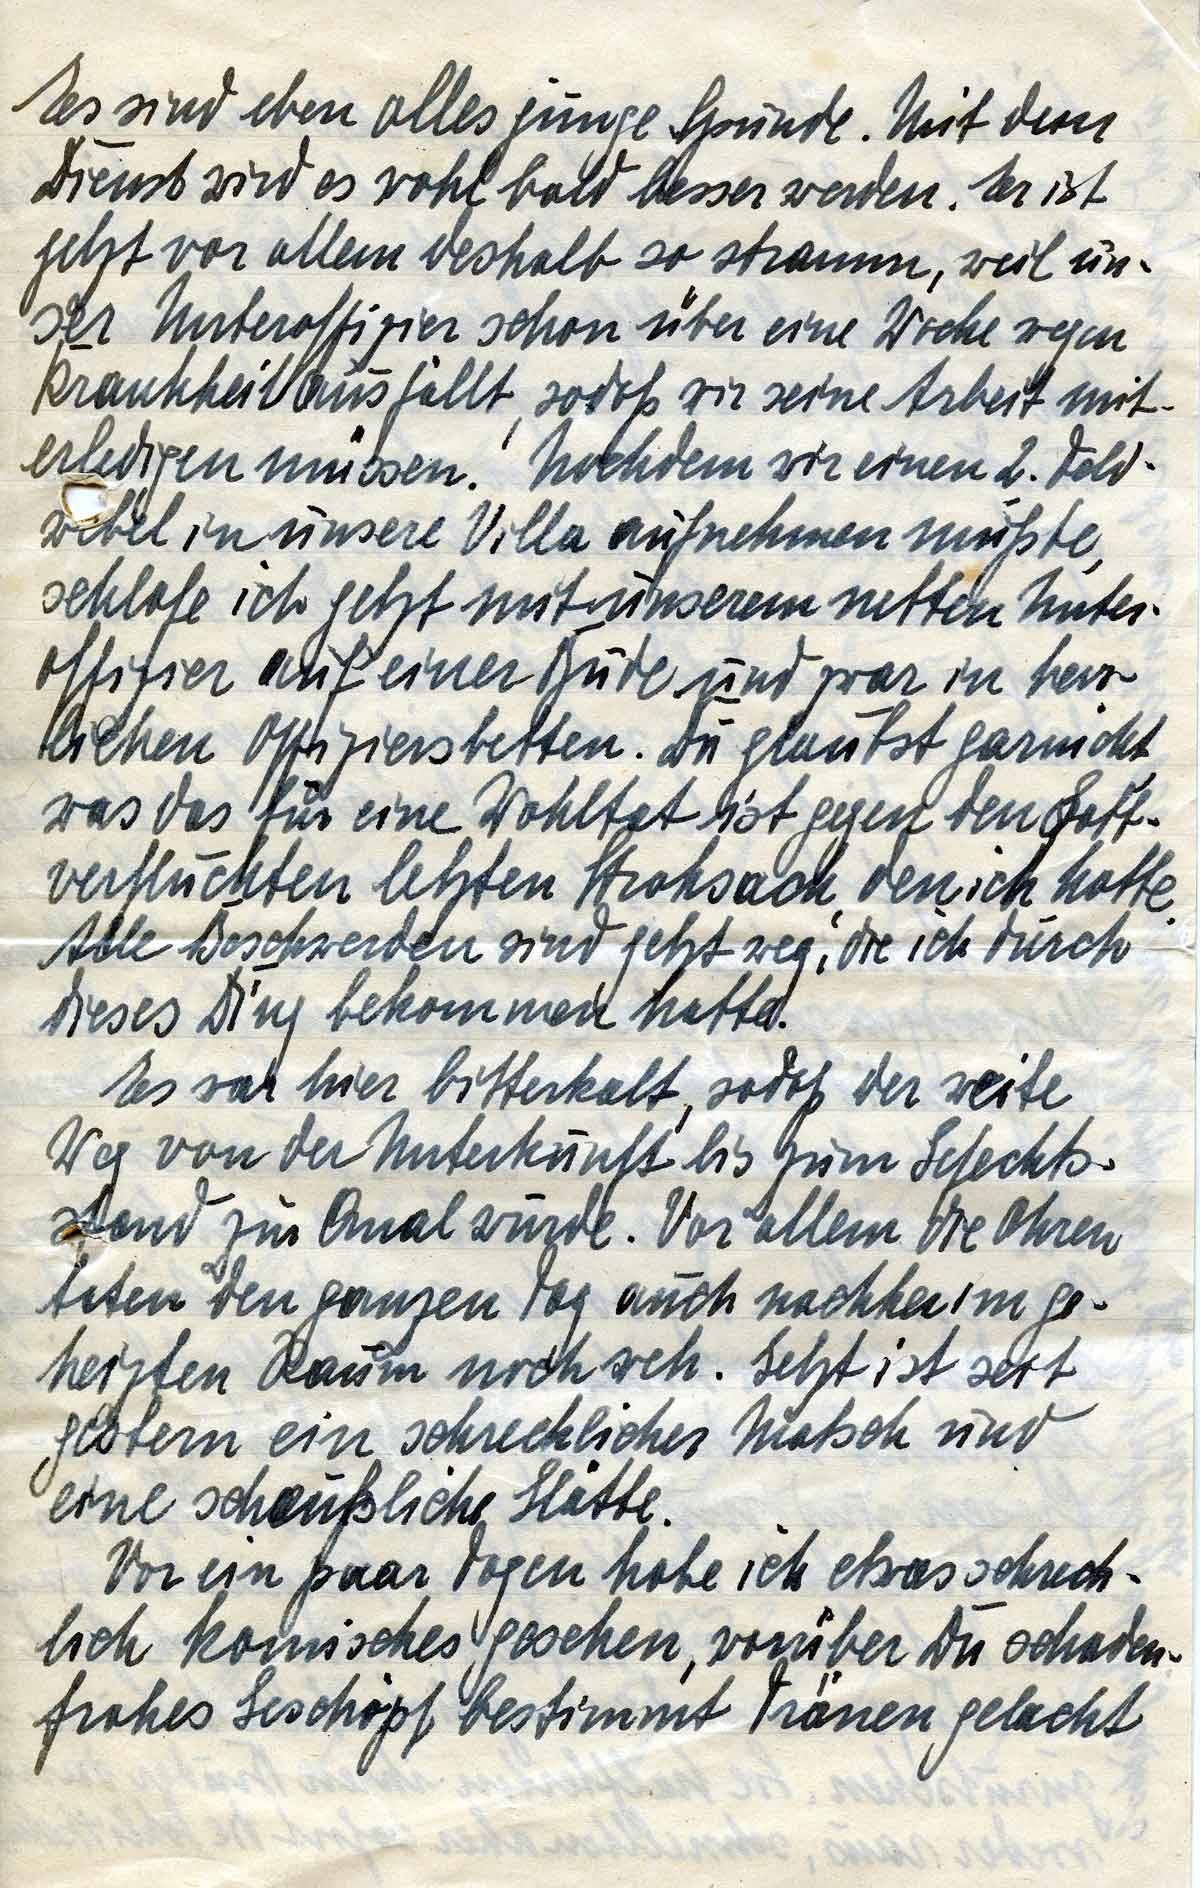 Es sind eben alles junge Hunde. Mit dem
Dienst wird es wohl bald besser werden. Er ist
jetzt vor allem deshalb so stramm, weil un-
ser Unteroffizier schon über eine Woche wegen
Krankheit ausfällt, sodaß wir seine Arbeit mit-
erledigen müssen. Nachdem wir einen 2. Feld-
webel in unsere Villa aufnehmen mußte,
schlafe ich jetzt mit unserem netten Unter-
offizier auf einer Bude und zwar in herr-
lichen Offiziersbetten. Du glaubst garnicht
was das für eine Wohltat ist gegen den Gott-
verfluchten letzten Strohsack, den ich hatte.
Alle Beschwerden sind jetzt weg, die ich durch
dieses Ding bekommen hatte.
Es war hier bitterkalt, sodaß der weite
Weg von der Unterkunft bis zum Gefechts-
stand zur Qual wurde. Vor allem die Ohren
taten den ganzen Tag auch nachher im ge-
heizten Raum noch weh. Jetzt ist seit
gestern ein schrecklicher Matsch und
eine scheußliche Glätte.
Vor ein paar Tagen habe ich etwas schreck-
lich komisches gesehen, worüber Du schaden-
frohes Geschöpf bestimmt Tränen gelacht